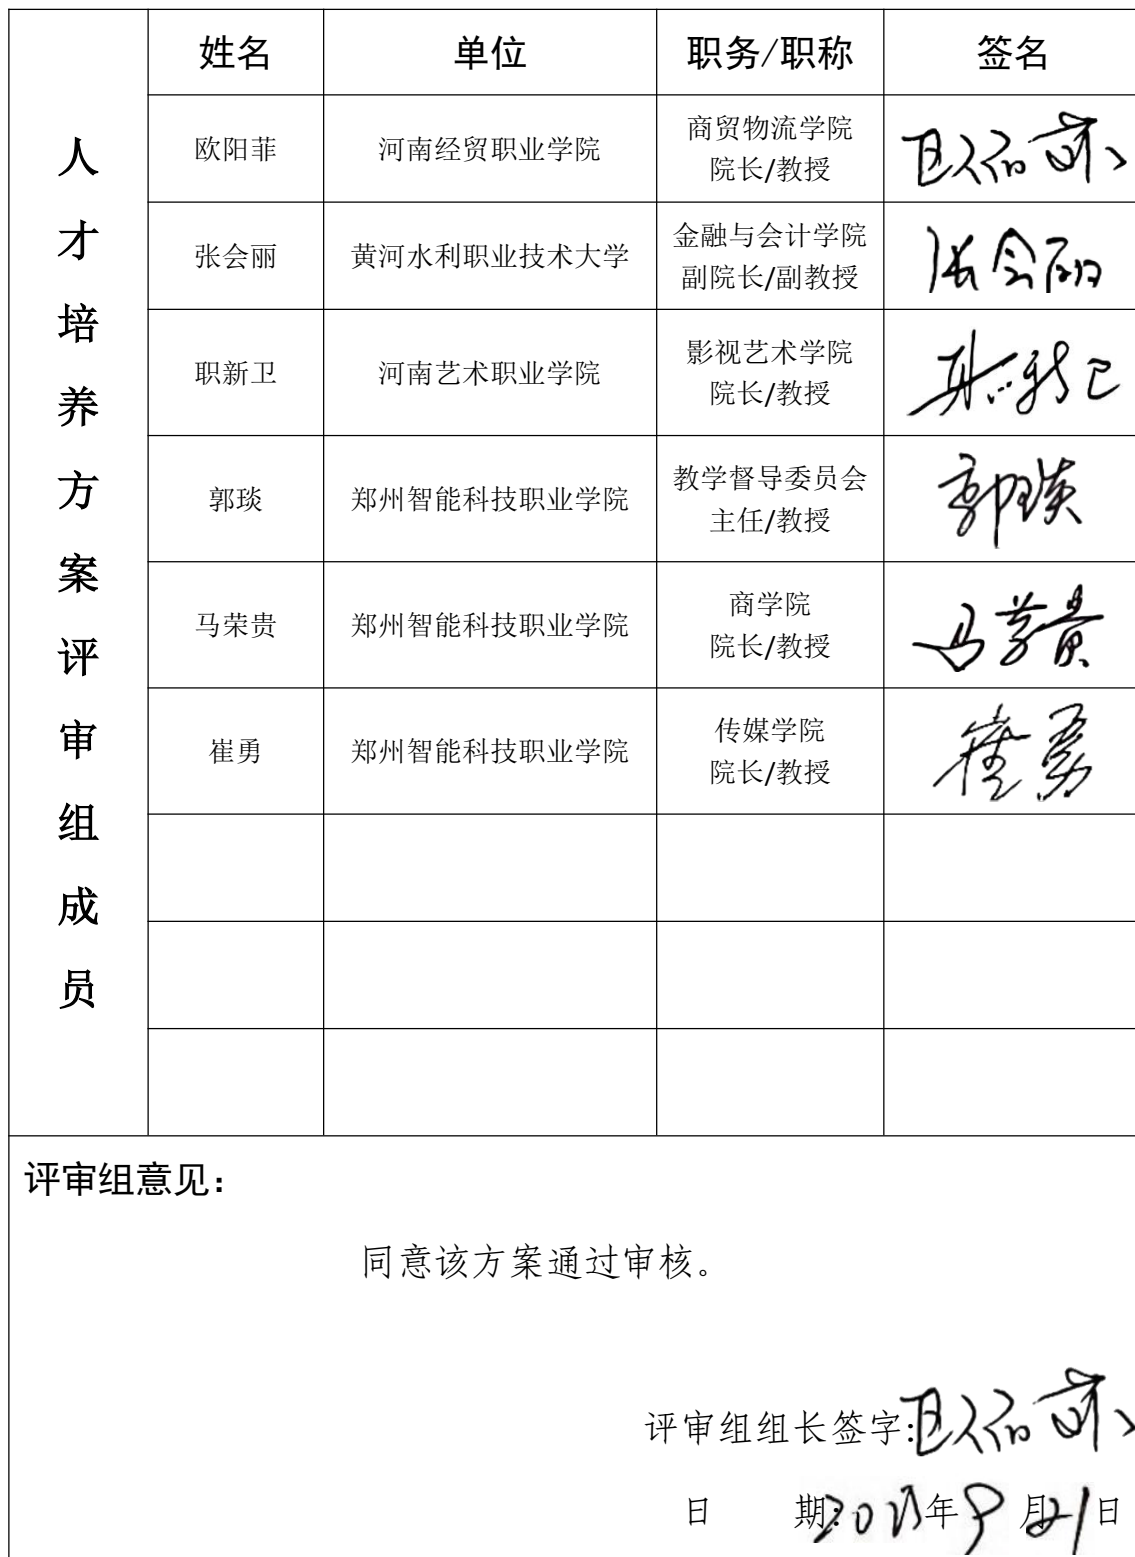 姓名 单位 职务/职称 签名
人才培养方案评审组成员
欧阳菲 河南经贸职业学院 商贸物流学院
院长/教授
张会丽 黄河水利职业技术大学 金融与会计学院
副院长/副教授 张会丽
职新卫 河南艺术职业学院 影视艺术学院
院长/教授 职新卫
郭琰 郑州智能科技职业学院 教学督导委员会
主任/教授 郭琰
马荣贵 郑州智能科技职业学院 商学院
院长/教授 马荣贵
崔勇 郑州智能科技职业学院 传媒学院
院长/教授 崔勇
评审组意见:
同意该方案通过审核。
评审组组长签字:
日 期: 年9月21日